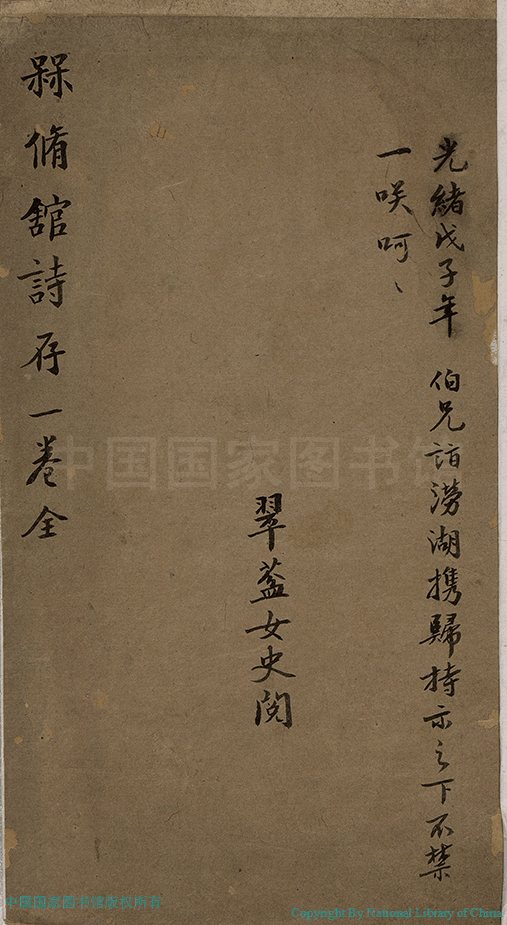 光緒戊子年 伯兄詣澇湖携歸持示之下不禁
一咲呵〻
翠蓋女史閱
槑脩舘詩存一卷全
中国国家图书馆
中国国家图书馆版权所有
Copyright By National Library of China